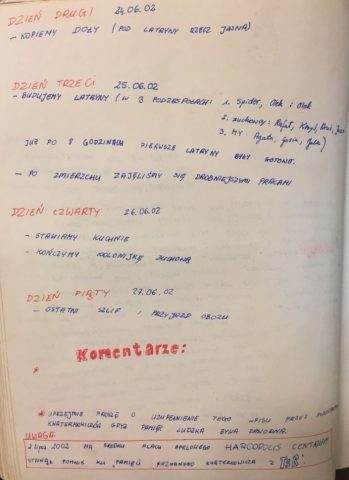 DZIEŃ DRUGI 24.06.02
- KOPIEMY DOŁY (POD LATRYNY RZECZ JASNA)
DZIEŃ TRZECI 25.06.02
- BUDUJEMY LATRYNY (W 3 PODZESPOŁACH: 1. Spider, Olek i Olek
2. zuchowcy: Rafał,
3. MY: Agata, Gosia,
JUŻ PO 8 GODZINACH PIERWSZE LATRYNY BYŁY GOTOWE.
- PO ZMIERZCHU ZAJĘLIŚMY SIĘ DROBNIEJSZYMI PRACAMI
DZIEŃ CZWARTY 26.06.02
- STAWIAMY KUCHNIE
- KOŃCZYMY KOLONIJKĘ ZUCHOWĄ
DZIEŃ PIĄTY 27.06.02
- OSTATNI SZLIF I PRZYJAZD OBOZU
Komentarze:
*
* UPRZEJMIE PROSZĘ O UZUPEŁNIENIE TEGO WPISU PRZEZ
KWATERMONICZÓW GDYŻ PAMIĘĆ LUDZKA BYWA ZAWODNA.
UWAGA
2 lipca 2002 NA ŚRODKU PLACU APELOWEGO HARCOPOLIS CENTRUM
STANĄŁ POMNIK KU PAMIĘCI NIEZNANEGO KWATERMONICZA Z